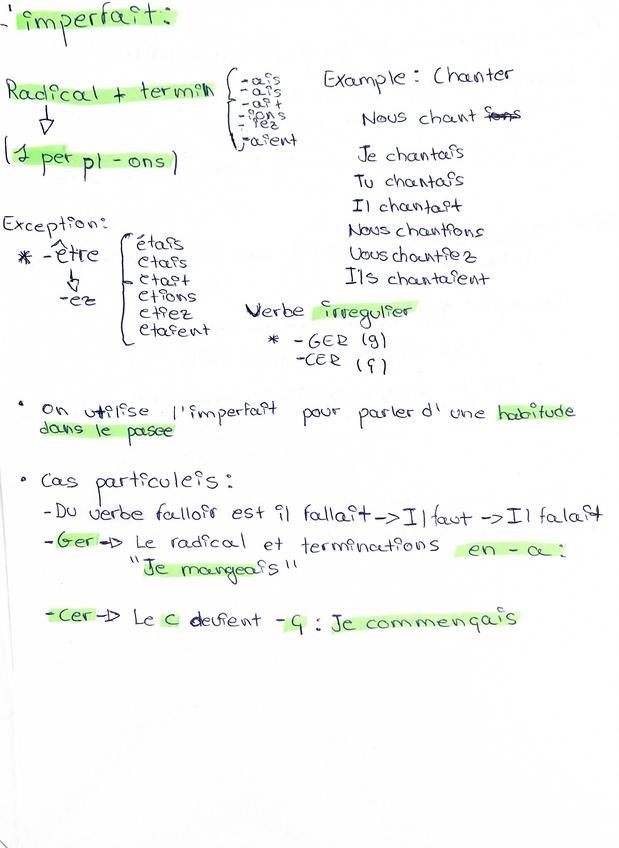 L'imperfait:
Radical + termin
-ais
-ais
-ait
-ions
-iez
-aient
(1 per pl -ons)
Example: Chanter
Nous chant
Je chantais
Tu chantais
Il chantait
Nous chantions
Vous chantiez
Ils chantaient
Exception:
* -être
-ez
étais
etais
etait
etions
etiez
etaient
Verbe irregulier
* -GER (g)
-CER (ç)
• On utilise l'imperfait pour parler d'une habitude
dans le pasee
• Cas particuleis:
-Du verbe falloir est il fallait -> Il faut -> Il falait
-Ger -> Le radical et terminations en -a:
"Je mangeais"
-Cer -> Le c devient -ç : Je commençais